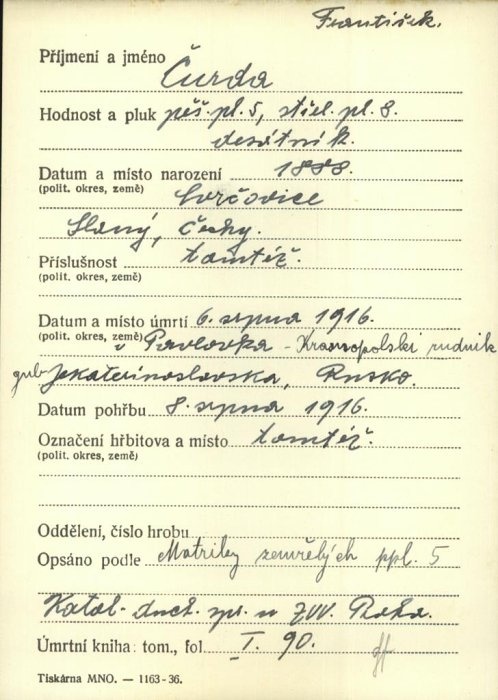 František.
Příjmení a jméno Čurda
Hodnost a pluk pěš. pl. 5, střel. pl. 8.
desátník.
Datum a místo narození 1888.
(polit. okres, země)
Slaný, Čechy.
Příslušnost tamtéž.
(polit. okres, země)
Datum a místo úmrtí 6. srpna 1916.
(polit. okres, země) v Pavlovka - Krasnopolski rudnik
gub. Jekaterinoslavska, Rusko.
Datum pohřbu 8. srpna 1916.
Označení hřbitova a místo tamtéž.
(polit. okres, země)
Oddělení, číslo hrobu
Opsáno podle Matriky zemřelých ppl. 5
Katol. duch. spr. u ZVV. Praha.
Úmrtní kniha: tom., fol. I. 90.
Tiskárna MNO. — 1163-36.